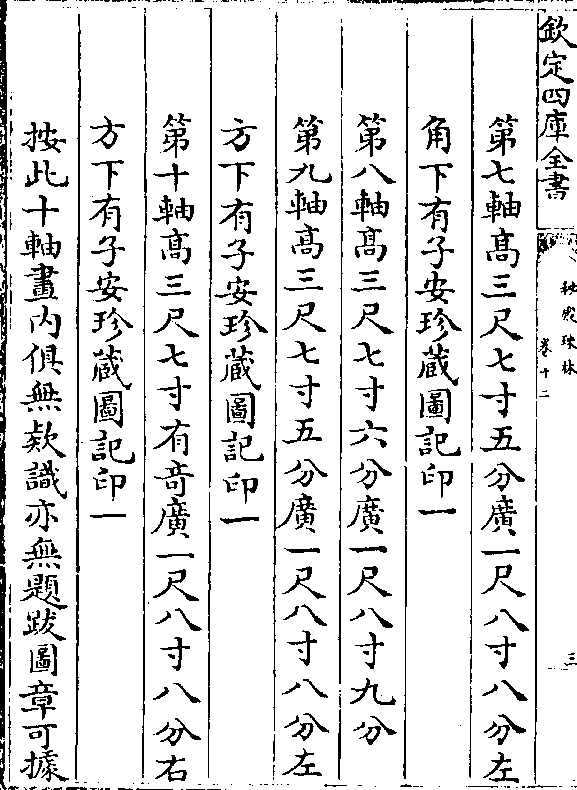 欽定四庫全書
秘殿珠林
卷十二
三
第七軸高三尺七寸五分廣一尺八寸八分左
角下有子安珍蔵圖記印一
第八軸髙三尺七寸六分廣一尺八寸九分
第九軸髙三尺七寸五分廣一尺八寸八分左
方下有子安珍蔵圖記印一
第十軸髙三尺七寸有竒廣一尺八寸八分右
方下有子安珍蔵圖記印一
按此十軸畫内俱無欵識亦無題跋圖章可據